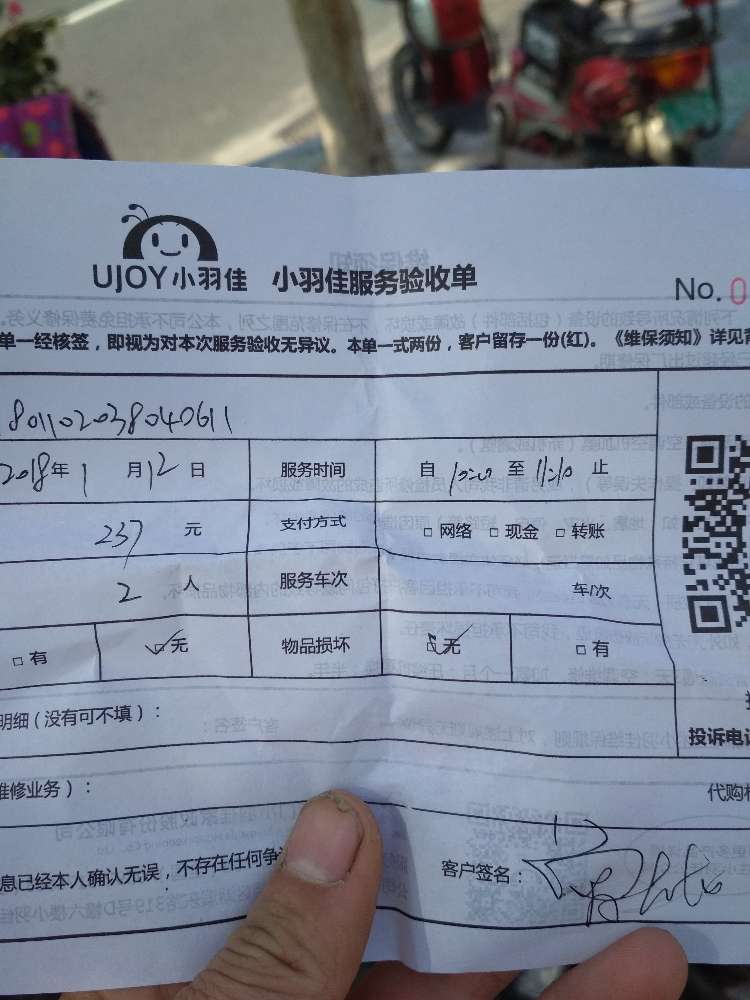 UJOY小羽佳 小羽佳服务验收单
No.0
单一经核签，即视为对本次服务验收无异议。本单一式两份，客户留存一份(红)。《维保须知》详见背
801102038040611
2018年1月12日 服务时间 自10:00至11:10止
237元 支付方式 □网络 □现金 □转账
2人 服务车次 车/次
□有 ☑无 物品损坏 ☑无 □有
明细(没有可不填)：
投诉电话
维修业务)：
代购
息已经本人确认无误，不存在任何争
客户签名：